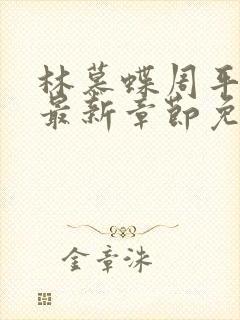 林慕蝶周平
最新章节免
金章洙